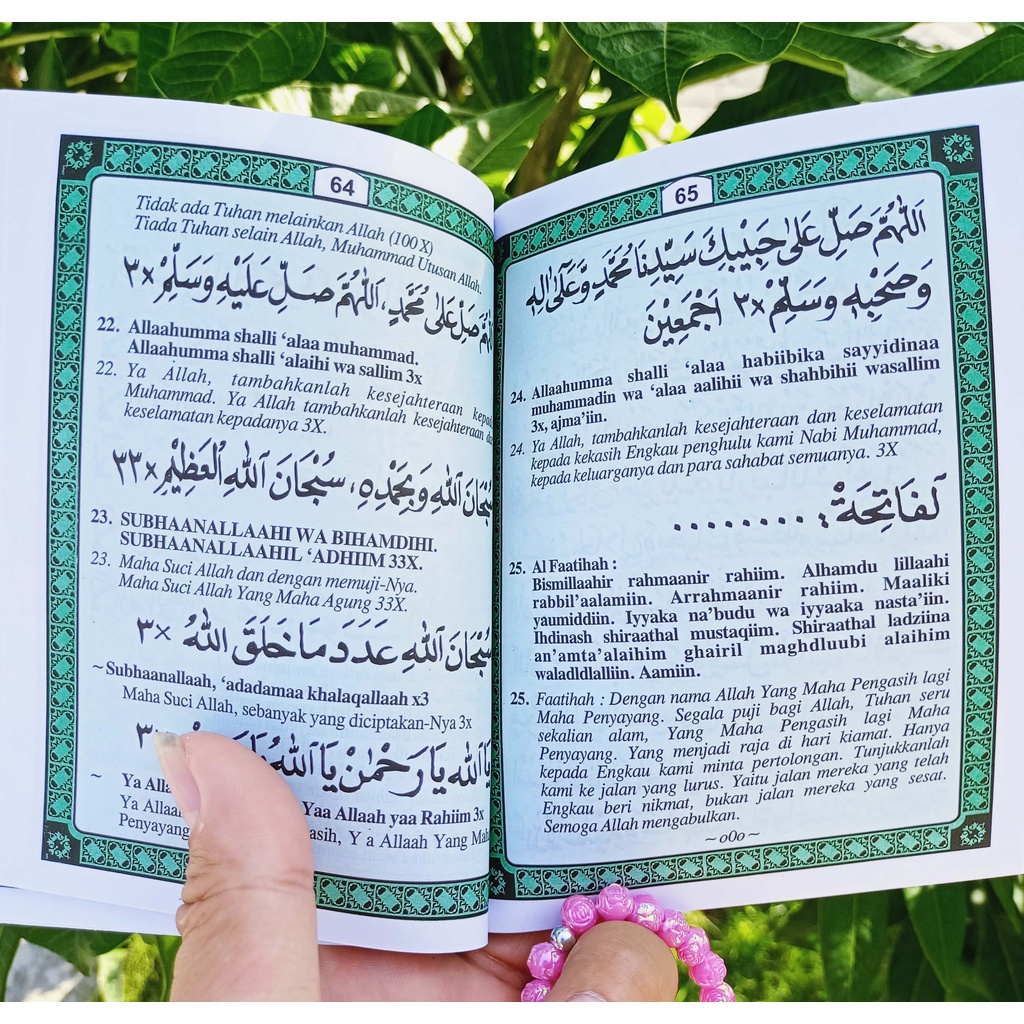 64
Tidak ada Tuhan melainkan Allah (100 X)
Tiada Tuhan selain Allah, Muhammad Utusan Allah,
صَلِّ عَلٰى مُحَمَّدٍ، اَللّٰهُمَّ صَلِّ عَلَيْهِ وَسَلِّمْ ×٣
22. Allaahumma shalli ‘alaa muhammad.
Allaahumma shalli ‘alaihi wa sallim 3x
22. Ya Allah, tambahkanlah kesejahteraan
Muhammad. Ya Allah tambahkanlah kesejahteraan
keselamatan kepadanya 3X.
سُبْحَانَ اللهِ وَبِحَمْدِهِ، سُبْحَانَ اللهِ الْعَظِيْمِ ×٣٣
23. SUBHAANALLAAHI WA BIHAMDIHI.
SUBHAANALLAAHIL ‘ADHIIM 33X.
23. Maha Suci Allah dan dengan memuji-Nya.
Maha Suci Allah Yang Maha Agung 33X.
سُبْحَانَ اللهِ عَدَدَ مَا خَلَقَ اللهُ ×٣
~ Subhaanallaah, ‘adadamaa khalaqallaah x3
Maha Suci Allah, sebanyak yang diciptakan-Nya 3x
يَا اَللهُ يَا رَحْمٰنُ يَا اَللهُ ٣
~ Ya Yaa Allaah yaa Rahiim 3x
Ya
Penyayang Y a Allaah Yang
65
اَللّٰهُمَّ صَلِّ عَلٰى حَبِيْبِكَ سَيِّدِنَا مُحَمَّدٍ وَّعَلٰى اٰلِهِ
وَصَحْبِهِ وَسَلِّمْ ×٣ اَجْمَعِيْنَ
24. Allaahumma shalli ‘alaa habiibika sayyidinaa
muhammadin wa ‘alaa aalihii wa shahbihii wasallim
3x, ajma’iin.
24. Ya Allah, tambahkanlah kesejahteraan dan keselamatan
kepada kekasih Engkau penghulu kami Nabi Muhammad,
kepada keluarganya dan para sahabat semuanya. 3X
لفَاتِحَةْ: .........
25. Al Faatihah :
Bismillaahir rahmaanir rahiim. Alhamdu lillaahi
rabbil’aalamiin. Arrahmaanir rahiim. Maaliki
yaumiddiin. Iyyaka na’budu wa iyyaaka nasta’iin.
Ihdinash shiraathal mustaqiim. Shiraathal ladziina
an’amta’alaihim ghairil maghdluubi alaihim
waladldlalliin. Aamiin.
25. Faatihah : Dengan nama Allah Yang Maha Pengasih lagi
Maha Penyayang. Segala puji bagi Allah, Tuhan seru
sekalian alam, Yang Maha Pengasih lagi Maha
Penyayang. Yang menjadi raja di hari kiamat. Hanya
kepada Engkau kami minta pertolongan. Tunjukkanlah
kami ke jalan yang lurus. Yaitu jalan mereka yang telah
Engkau beri nikmat, bukan jalan mereka yang sesat.
Semoga Allah mengabulkan.
~ o0o ~